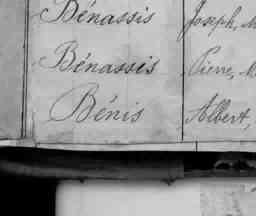 Bénassis Joseph, M
Bénassis Pierre, M
Bénis Albert,